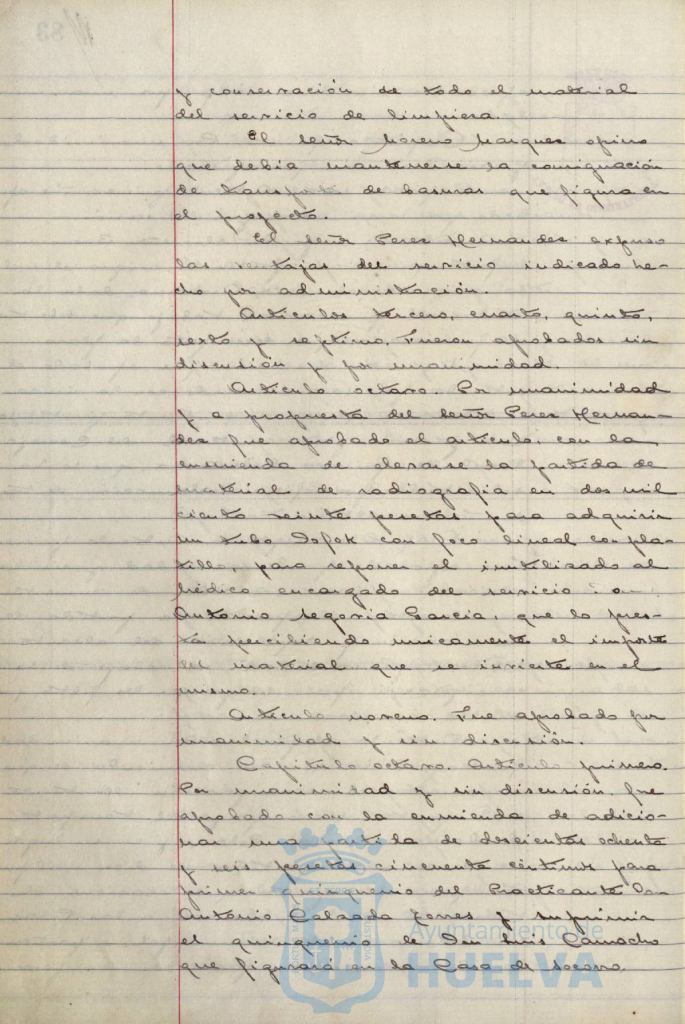 y conservación de todo el material
del servicio de limpiesa.
El Señor Moreno Marquez opino
que debia mantenerse la consignación
de transporte de basuras que figura en
el proyecto.
El Señor Perez Hernandez expuso
las ventajas del servicio indicado he-
cho por administración.
Articulos tercero, cuarto, quinto,
sexto y septimo. Fueron aprobados sin
discusión y por unanimidad.
Articulo octavo. Por unanimidad
y a propuesta del Señor Perez Hernan-
dez fue aprobado el articulo, con la
enmienda de elevarse la partida de
material de radiografia en dos mil
ciento veinte pesetas para adquirir
un tubo con foco lineal con pla-
tillo, para reponer el inutilizado al
Médico encargado del servicio
Antonio Segovia Garcia, que lo pres-
ta percibiendo unicamente el importe
del material que se invierte en el
mismo.
Articulo noveno. Fue aprobado por
unanimidad y sin discusión.
Capitulo octavo. Articulo primero.
Por unanimidad y sin discusión fue
aprobado con la enmienda de adicio-
nar una partida de doscientas ochenta
y seis pesetas cincuenta céntimos para
primer quinquenio del Practicante Don
Antonio Calzada Torres y suprimir
el quinquenio de Don Luis Camacho
que figurará en la Casa de Socorro.
Ayuntamiento de
HUELVA